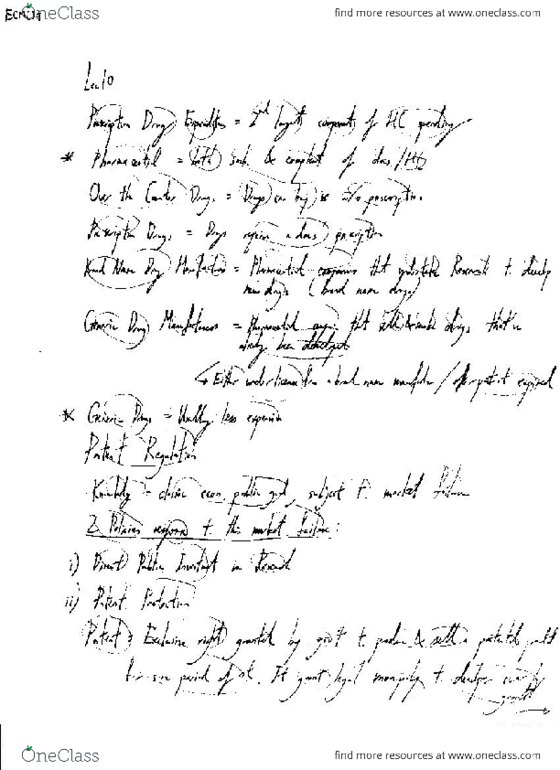 OneClass
find more resources at www.oneclass.com
Lec 10
Prescription Drug Expenditures = 2nd largest components of HC spending
* Pharmaceutical = both Sub. & complement of docs/HC
Over the Counter Drugs = Drugs can buy w/o prescription.
Prescription Drugs = Drugs require a docs prescription
Brand Name Drug Manufacturers = Pharmaceutical companies that undertake Research to develop
new drugs (brand name drugs)
Generic Drug Manufacturers = Pharmaceutical that drugs that've
already been developed
↳ Either under license from a brand name manufacturer / after patent expired
* Generic Drugs = Usually less expensive
Patent Regulation
Knowledge = classic econ. public good, subject to market failure
2 Policies respond to this market failure:
i) Direct Public Investment in Research
ii) Patent Protection
Patent = Exclusive right granted by gov't to produce & sell a patented product
for some period of It grant legal monopoly to developer
OneClass
find more resources at www.oneclass.com